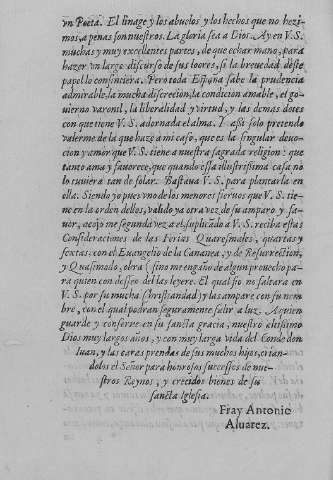 vn Poeta. El linage y los abuelos y los hechos que no hezi-
mos, a penas son nuestros. La gloria sea a Dios. Ay en V.S.
muchas y muy excellentes partes, de que echar mano, para
hazer vn largo discurso de sus loores, si la breuedad deste
papel lo consintiera. Pero toda España sabe la prudencia
admirable, la mucha discrecion, la condicion amable, el go-
uierno varonil, la liberalidad y virtud, y las demas dotes
con que tiene V. S. adornada el alma. Y assi solo pretendo
valerme de la que haze a mi caso, que es la singular deuo-
cion y amor que V. S. tiene a nuestra sagrada religion: que
tanto ama y fauorece, que quando essa illustrissima casa no
lo tuuiera tan de solar, Bastaua V.S. para plantarla en
ella. Siendo yo pues vno de los menores sieruos que V.S. tie-
ne en la orden dellos, valido ya otra vez de su amparo y fa-
uor, acojo me segunda vez a el, suplicado a V. S. reciba estas
Consideraciones de las Ferias Quaresmales, quartas y
sextas: con el Euangelio de la Cananea, y de Resurrection,
y Quasimodo, obra (sino me engaño de algun prouecho pa-
ra quien con desseo del las leyere. El qual fio no faltara en
V.S. por su mucha Christiandad) y las ampare con su nom-
bre, con el qual podran seguramente salir a luz. A quien
guarde y conserue en su sancta gracia, nuestro altissimo
Dios muy largos años, y con muy larga vida del Conde don
Iuan, y las caras prendas de sus muchos hijos, crian-
dolos el Señor para honrosos successos de nue-
stros Reynos, y crecidos bienes de su
sancta Iglesia.
Fray Antonio
Aluarez.